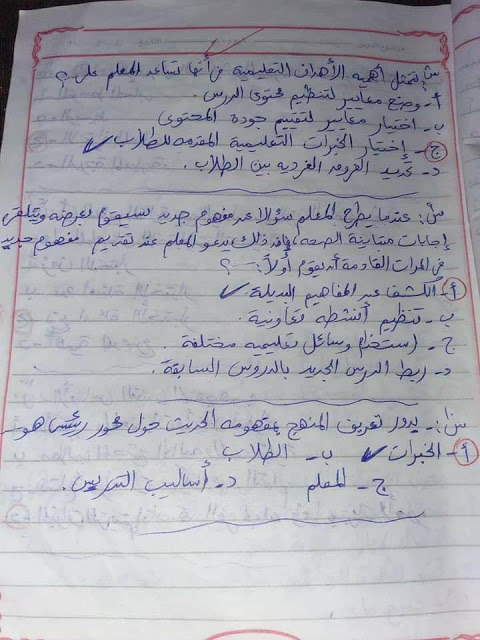 س: تتمثل أهمية الأهداف التعليمية في أنها تساعد المعلم على ؟
أ- وضع معايير لتنظيم محتوى الدرس.
ب- اختيار معايير لتقييم جودة المحتوى
ج- إختيار الخبرات التعليمية المقدمه للطلاب ✓
د- تحديد الفروق الفرديه بين الطلاب.
س: عندما يطرح المعلم سؤالا عن مفهوم جديد سيقوم بعرضه ويتلقى
إجابات متباينة الصحه، فإن ذلك يدعو المعلم عند تقديم مفهوم جديد
في المرات القادمة أن يقوم أولاً: ـ ؟
أ- الكشف عن المفاهيم البديلة. ✓
ب- تنظيم أنشطه تعاونية.
ج- إستخدام وسائل تعليميه مختلفة.
د- ربط الدرس الجديد بالدروس السابقة.
س: يدور تعريف المنهج بمفهومه الحديث حول محور رئيسى هو
أ- الخبرات ✓ ب- الطلاب
ج- المعلم د- أساليب التدريس.